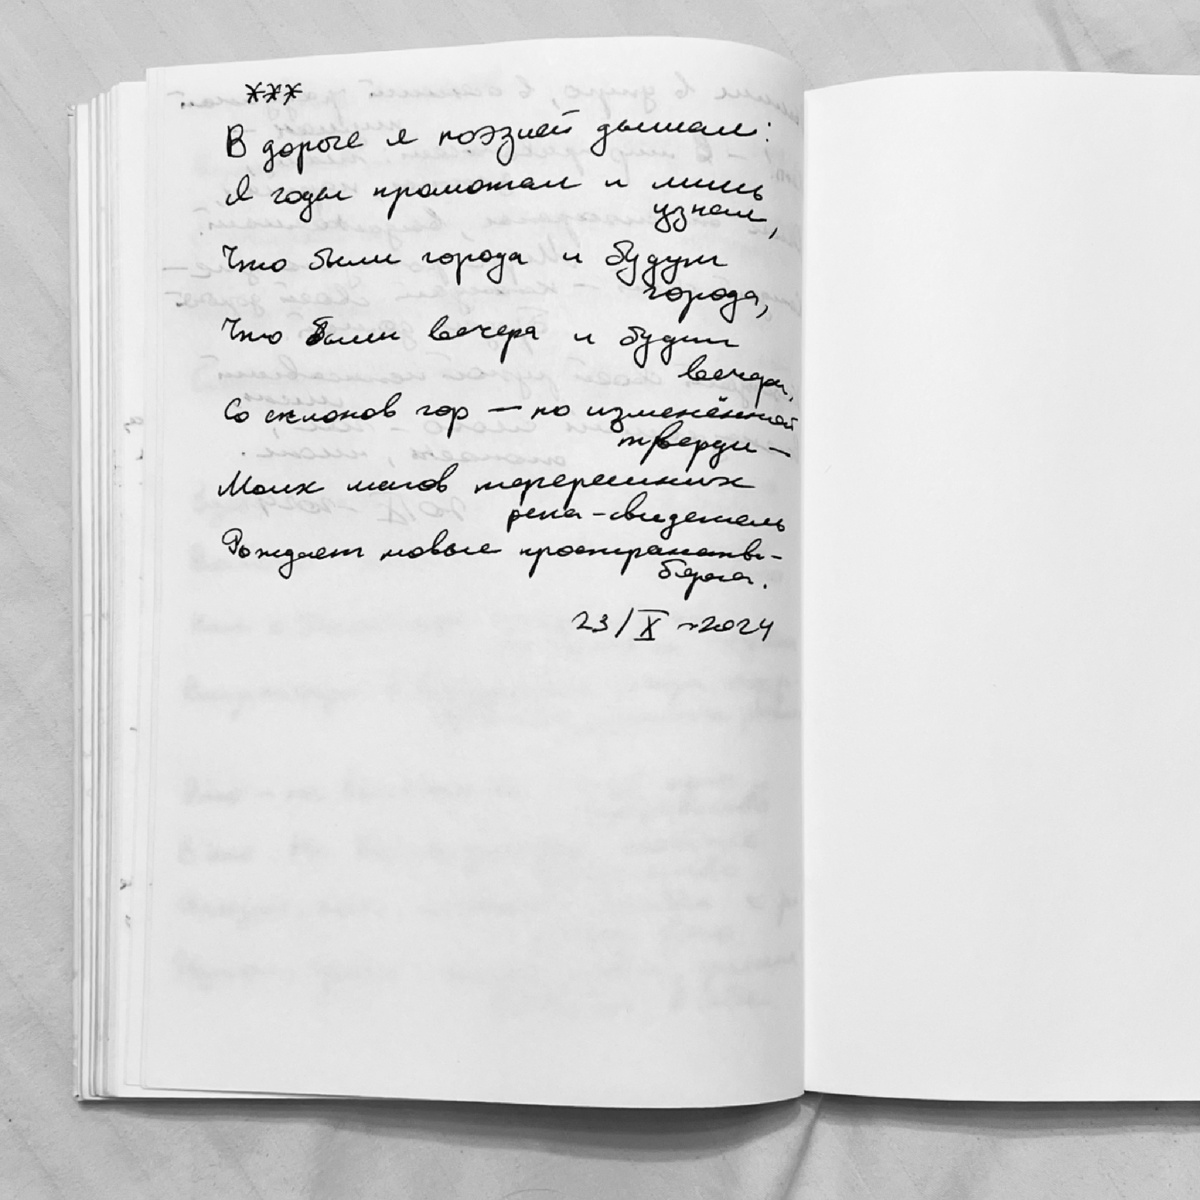 ***
В дороге я поэзией дышал:
Я годы промотал и лишь
узнал,
Что были города и будут
города,
Что были вечера и будут
вечера,
Со склонов гор — по изменённой
тверди —
Моих шагов
река-свидетель
Рождает новые пространства-
берега.
23/X-2024